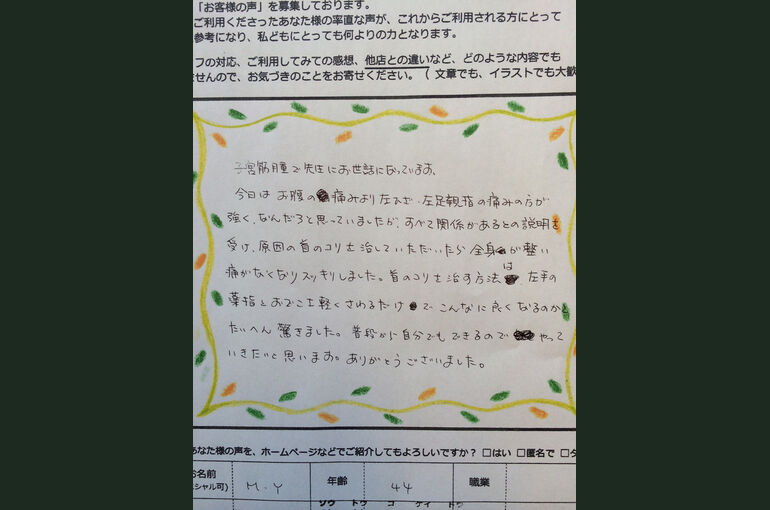 「お客様の声」を募集しております。
ご利用くださったあなた様の率直な声が、これからご利用される方にとって
参考になり、私どもにとっても何よりの力となります。
フの対応、ご利用してみての感想、他店との違いなど、どのような内容でも
せんので、お気づきのことをお寄せください。（文章でも、イラストでも大歓
子宮筋腫で先生にお世話になっています。
今日はお腹の痛みより左ひざ、左足親指の痛みの方が
強く、なんだろと思っていましたが、すべて関係があるとの説明を
受け、原因の首のコリを治していただいたら全身が整い
痛がなくなりスッキリしました。首のコリを治す方法は左手の
薬指とおでこを軽くさわるだけでこんなに良くなるのかと
たいへん驚きました。普段から自分でもできるのでやって
いきたいと思います。ありがとうございました。
あなた様の声を、ホームページなどでご紹介してもよろしいですか？ □はい □匿名で □ダ
お名前 年齢 職業
シャル可) M.Y 44
ソウ トウ コ ケイ ドウ